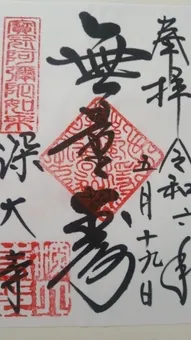 奉拝 令和六年
五月十九日
無量寿
寳冠阿彌陀如来
深大寺